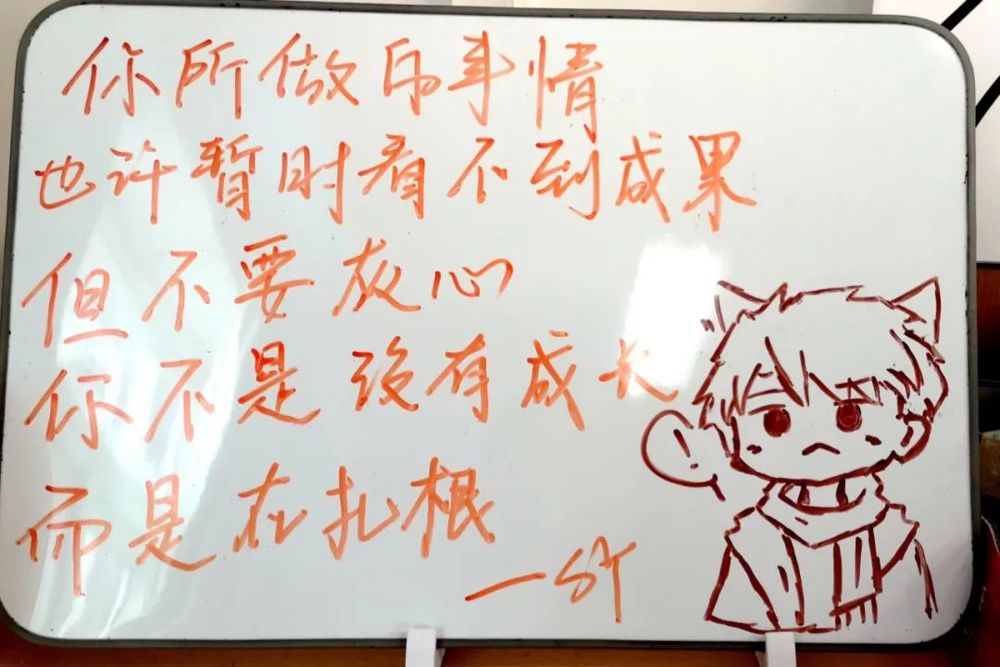 你所做的事情
也许暂时看不到成果
但不要灰心
你不是没有成长
而是在扎根